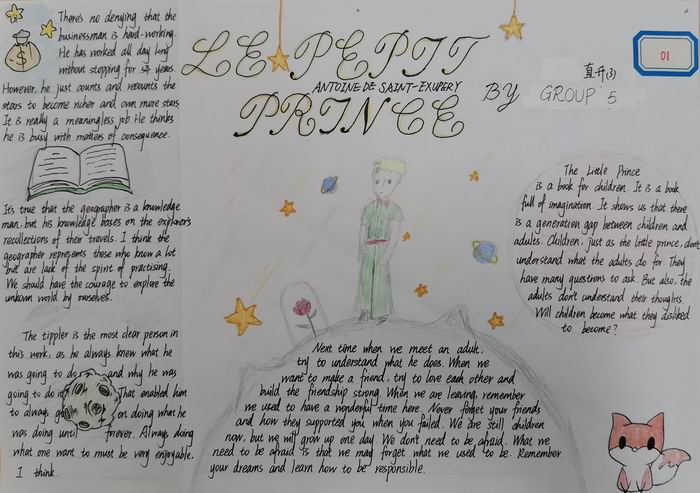 There's no denying that the
businessman is hard-working.
He has worked all day long
without stopping for 54 years.
However, he just counts and recounts the
stars to become richer and own more stars.
It is really a meaningless job. He thinks
he is busy with matters of consequence.
It's true that the geographer is a knowledge
man, but his knowledge bases on the explorer's
recollections of their travels. I think the
geographer represents those who know a lot
but are lack of the spirit of practising.
We should have the courage to explore the
unkown world by ourselves.
The tippler is the most clear person in
this work, as he always knew what he
was going to do and why he was
going to do it. That enabled him
to always go on doing what he
was doing until forever. Always doing
what one want to must be very enjoyable.
I think.
LE PEPIT
ANTOINE DE SAINT-EXUPÉRY
PRINCE
BY GROUP 5
直升(3)
01
The Little Prince
is a book for children. It is a book
full of imagination. It shows us that there
is a generation gap between children and
adults. Children, just as the little prince, don't
understand what the adults do for. They
have many questions to ask. But also, the
adults don't understand their thoughts.
Will children become what they disliked
to become?
Next time when we meet an adult,
try to understand what he does. When we
want to make a friend, try to love each other and
build the friendship strong. When we are leaving, remember
we used to have a wonderful time here. Never forget your friends
and how they supported you when you failed. We are still children
now, but we will grow up one day. We don't need to be afraid. What we
need to be afraid is that we may forget what we used to be. Remember
your dreams and learn how to be responsible.